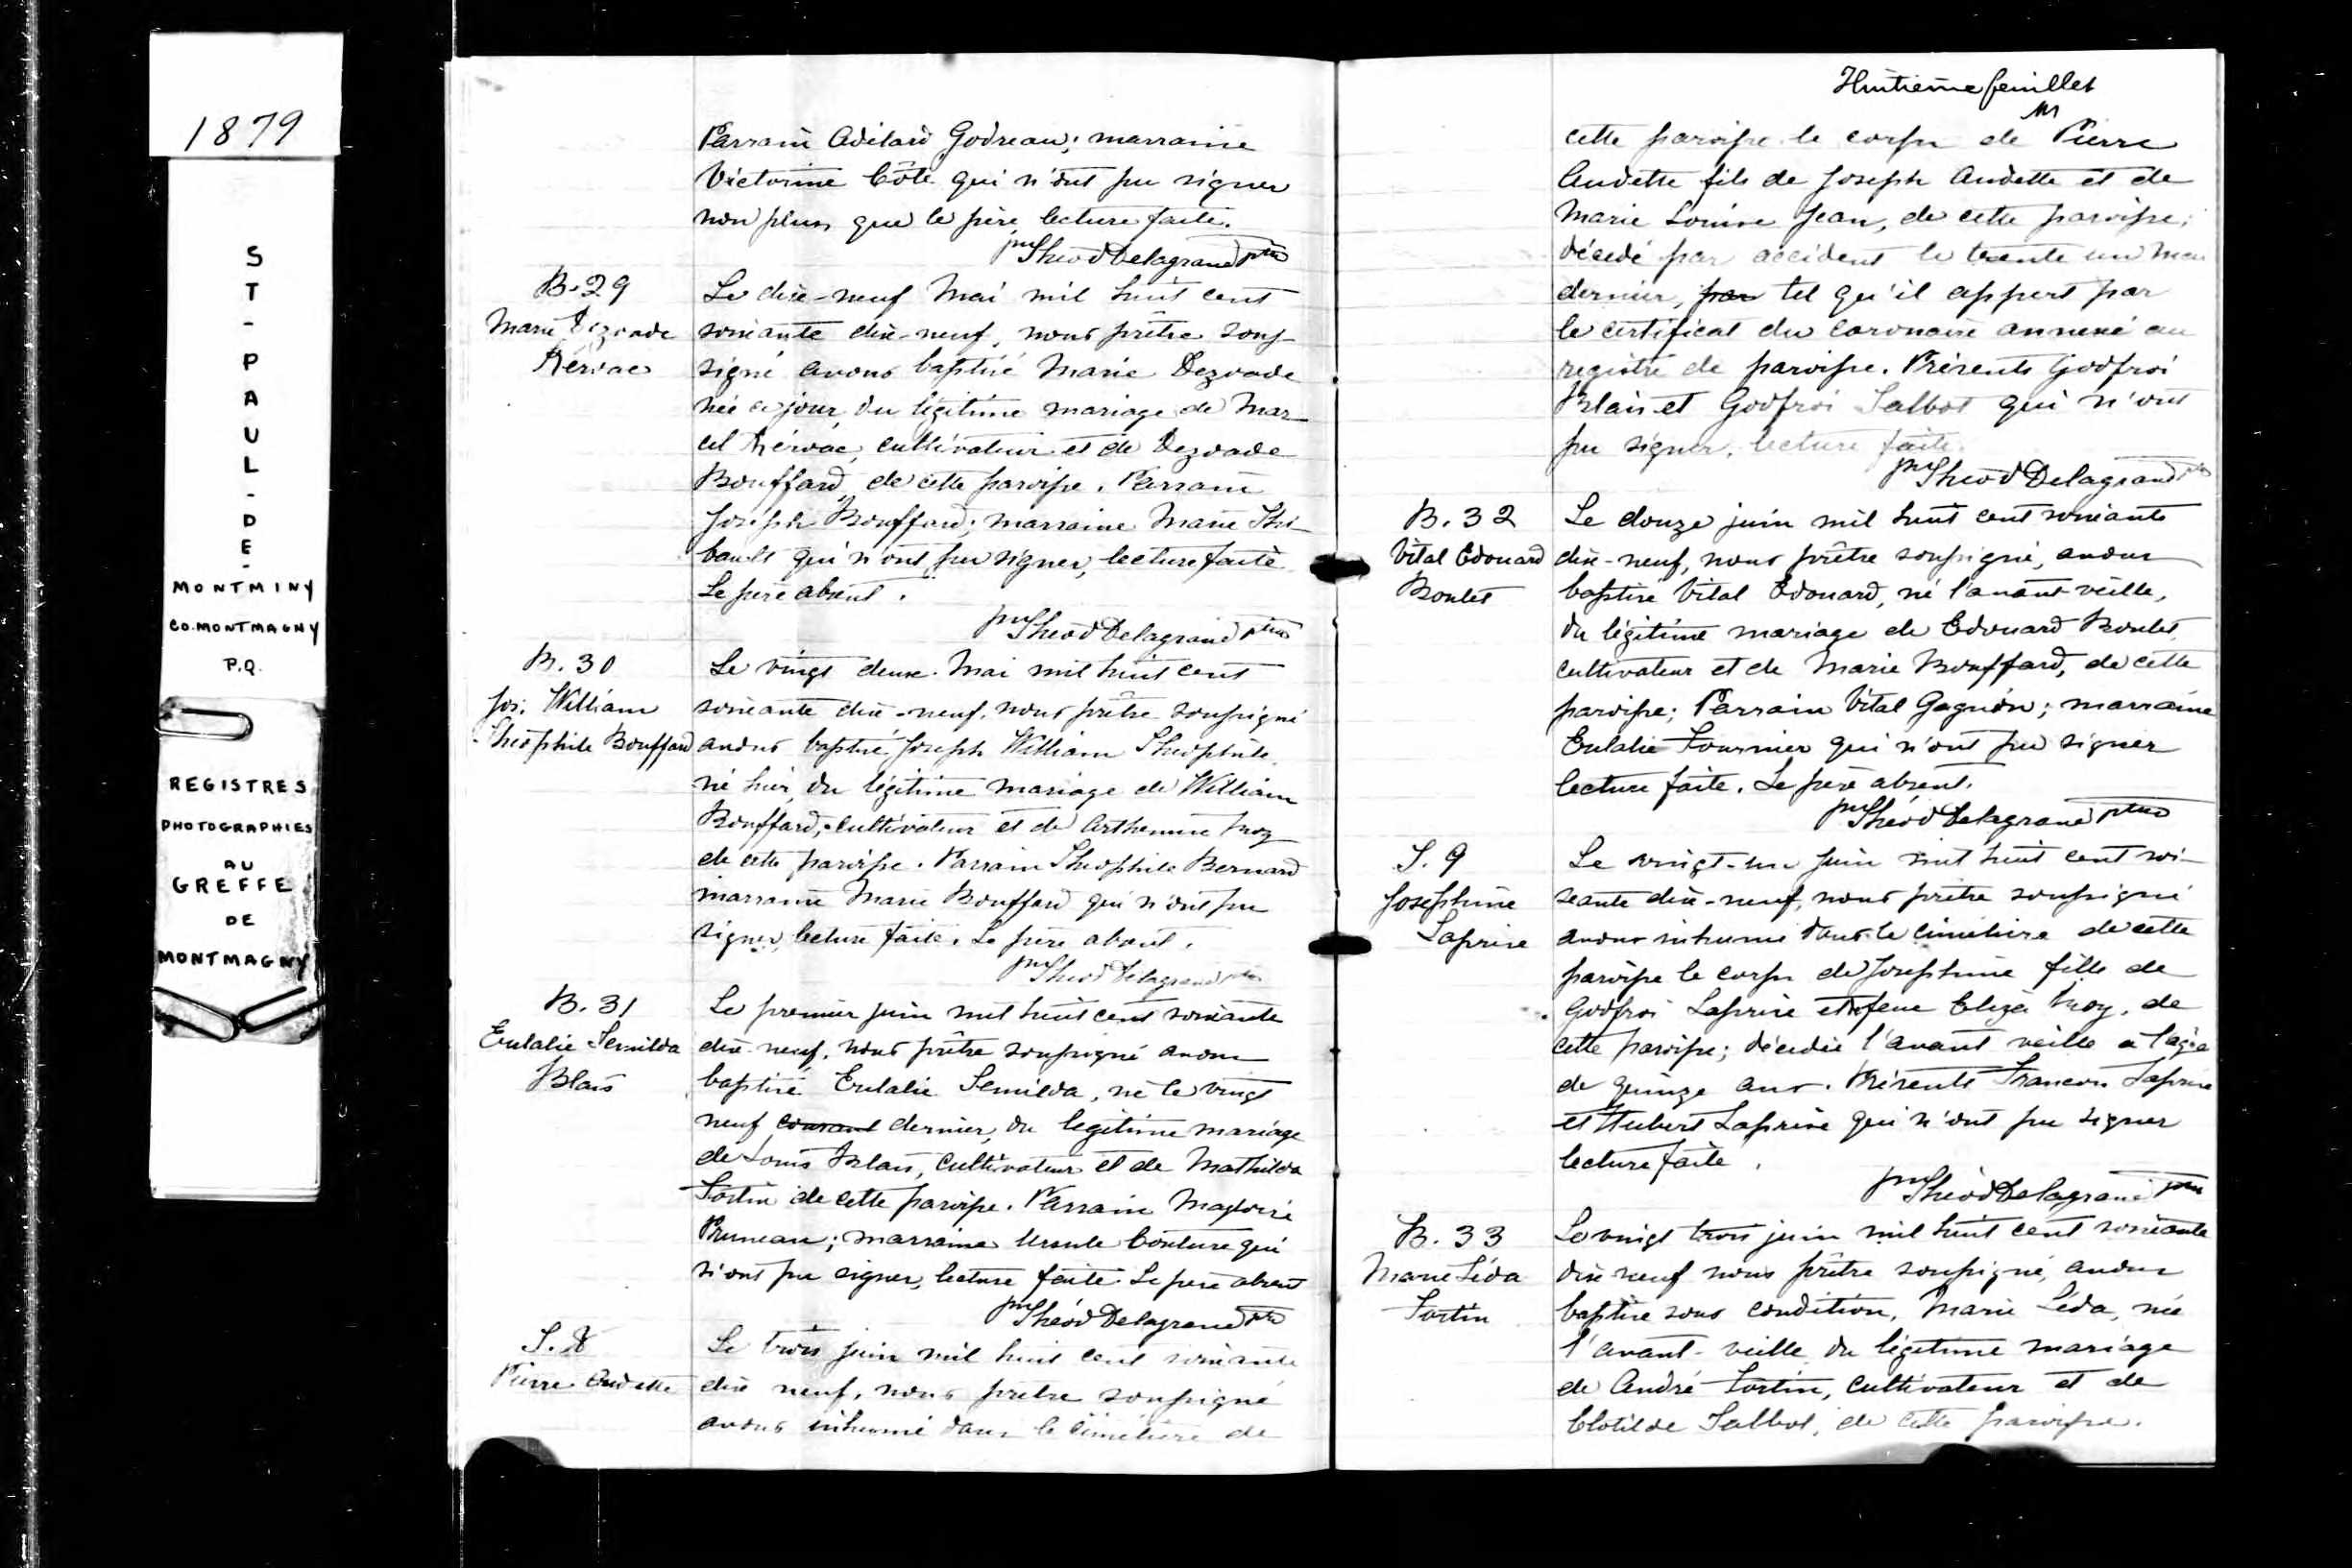 1879
ST-PAUL-DE-
MONTMINY
CO. MONTMAGNY
P.Q.
REGISTRES
PHOTOGRAPHIES
AU
GREFFE
DE
MONTMAGNY
Parrain Adélard Godreau; marraine
Victorine Côté qui n'ont pu signer
non plus que le père, lecture faite.
Théod Delagrave ptre
B. 29
Marie Dezoade
Le dix-neuf Mai mil huit cent
soixante dix-neuf, nous prêtre sous-
signé avons baptisé Marie Dezoade
née ce jour, du légitime mariage de Mar-
cel cultivateur et de Dezoade
Bouffard, de cette paroisse. Parrain
Joseph Bouffard; marraine Marie Thi-
bault qui n'ont pu signer, lecture faite
Le père absent.
Théod Delagrave ptre
B. 30
Jos. William
Théophile Bouffard
Le vingt deux Mai mil huit cent
soixante dix-neuf, nous prêtre soussigné
avons baptisé Joseph William Théophile,
né hier, du légitime mariage de William
Bouffard, cultivateur et de Arthemise
de cette paroisse. Parrain Théophile Bernard
marraine Marie Bouffard qui n'ont pu
signer, lecture faite. Le père absent.
Théod Delagrave ptre
B. 31
Eulalie Semilda
Blais
Le premier juin mil huit cent soixante
dix-neuf, nous prêtre soussigné avons
baptisé Eulalie Semilda, né le vingt
neuf courant dernier, du légitime mariage
de Louis Blais, cultivateur et de Mathilda
Fortin de cette paroisse. Parrain Magloire
Pruneau; marraine Ursule Couture qui
n'ont pu signer, lecture faite. Le père absent
Théod Delagrave ptre
S. 8
Pierre Audette
Le trois juin mil huit cent soixante
dix neuf, nous prêtre soussigné
avons inhumé dans le cimétière de
Huitième feuillet
cette paroisse le corps de Pierre
Audette fils de Joseph Audette et de
Marie Louise Jean, de cette paroisse;
décédé par accident le trente un Mai
dernier, par tel qu'il appert par
le certificat du coronaire annexé au
registre de paroisse. Présents Godfroi
Blais et Godfroi Talbot qui n'ont
pu signer, lecture faite.
Théod Delagrave ptre
B. 32
Vital Edouard
Boulet
Le douze juin mil huit cent soixante
dix-neuf, nous prêtre soussigné, avons
baptisé Vital Edouard, né l'avant-veille,
du légitime mariage de Edouard Boulet,
cultivateur et de Marie Bouffard, de cette
paroisse; Parrain Vital Gagnon; marraine
Eulalie Fournier qui n'ont pu signer
lecture faite. Le père absent.
Théod Delagrave ptre
S. 9
Josephine
Laprise
Le vingt-un juin mil huit cent soi-
xante dix-neuf, nous prêtre soussigné
avons inhumé dans le cimétière de cette
paroisse le corps de Josephine fille de
Godfroi Laprise et feue Eliza de
cette paroisse; décédée l'avant veille à l'âge
de quinze ans. Présents Francois Laprise
et Hubert Laprise qui n'ont pu signer
lecture faite.
Théod Delagrave ptre
B. 33
Marie Léda
Fortin
Le vingt trois juin mil huit cent soixante
dix neuf nous prêtre soussigné, avons
baptisé sous condition, Marie Léda, née
l'avant-veille du légitime mariage
de André Fortin, cultivateur et de
Clotilde Talbot, de cette paroisse.